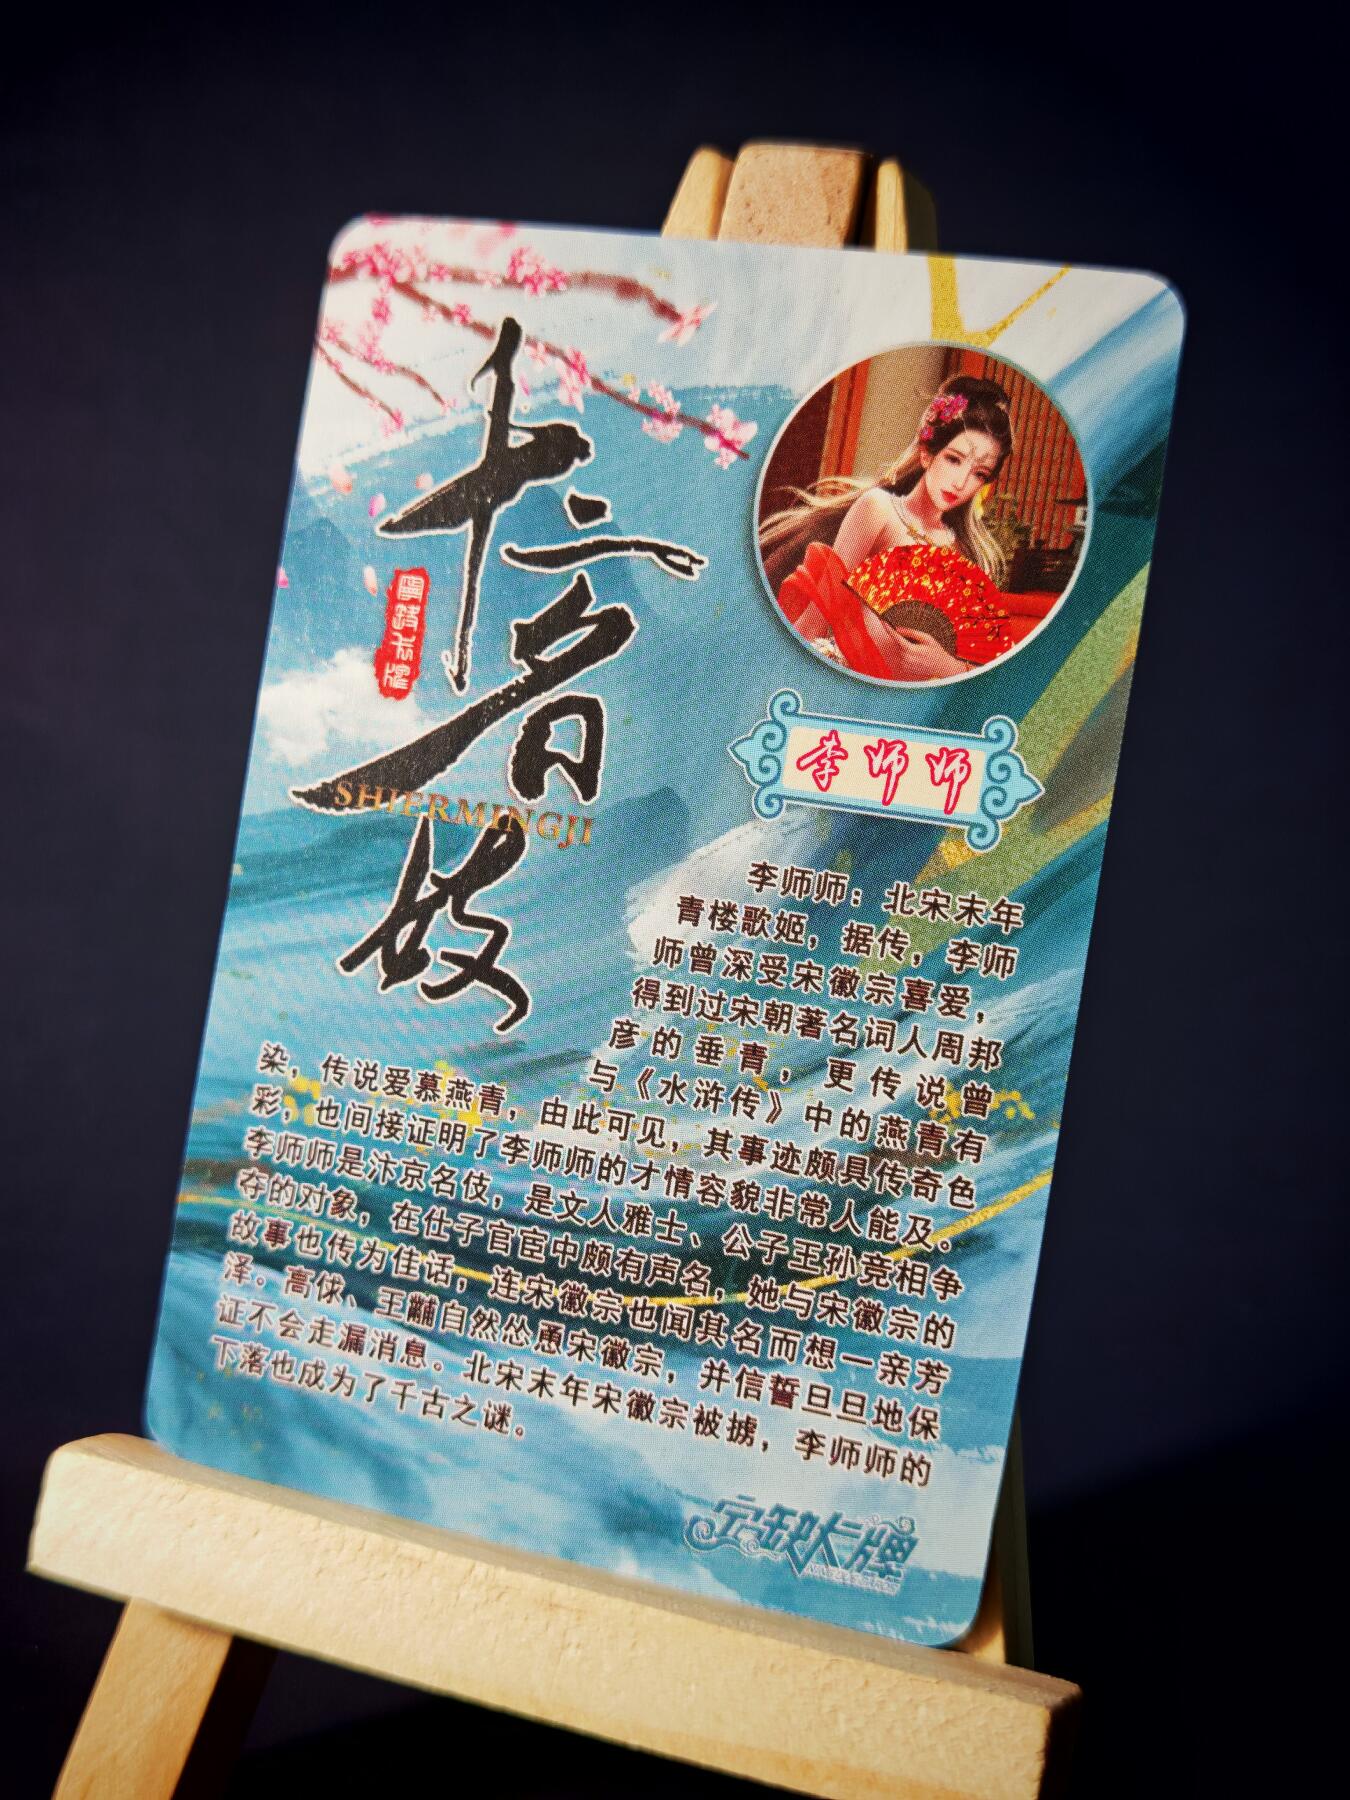 十二名妓
SHIERMINGJI
宁缺大牌
李师师
李师师：北宋末年
青楼歌姬，据传，李师
师曾深受宋徽宗喜爱，
得到过宋朝著名词人周邦
彦的垂青，更传说曾
与《水浒传》中的燕青有
染，传说爱慕燕青，由此可见，其事迹颇具传奇色
彩，也间接证明了李师师的才情容貌非常人能及。
李师师是汴京名伎，是文人雅士、公子王孙竞相争
夺的对象，在仕子官宦中颇有声名，她与宋徽宗的
故事也传为佳话，连宋徽宗也闻其名而想一亲芳
泽。高俅、王黼自然怂恿宋徽宗，并信誓旦旦地保
证不会走漏消息。北宋末年宋徽宗被掳，李师师的
下落也成为了千古之谜。
宁缺大牌